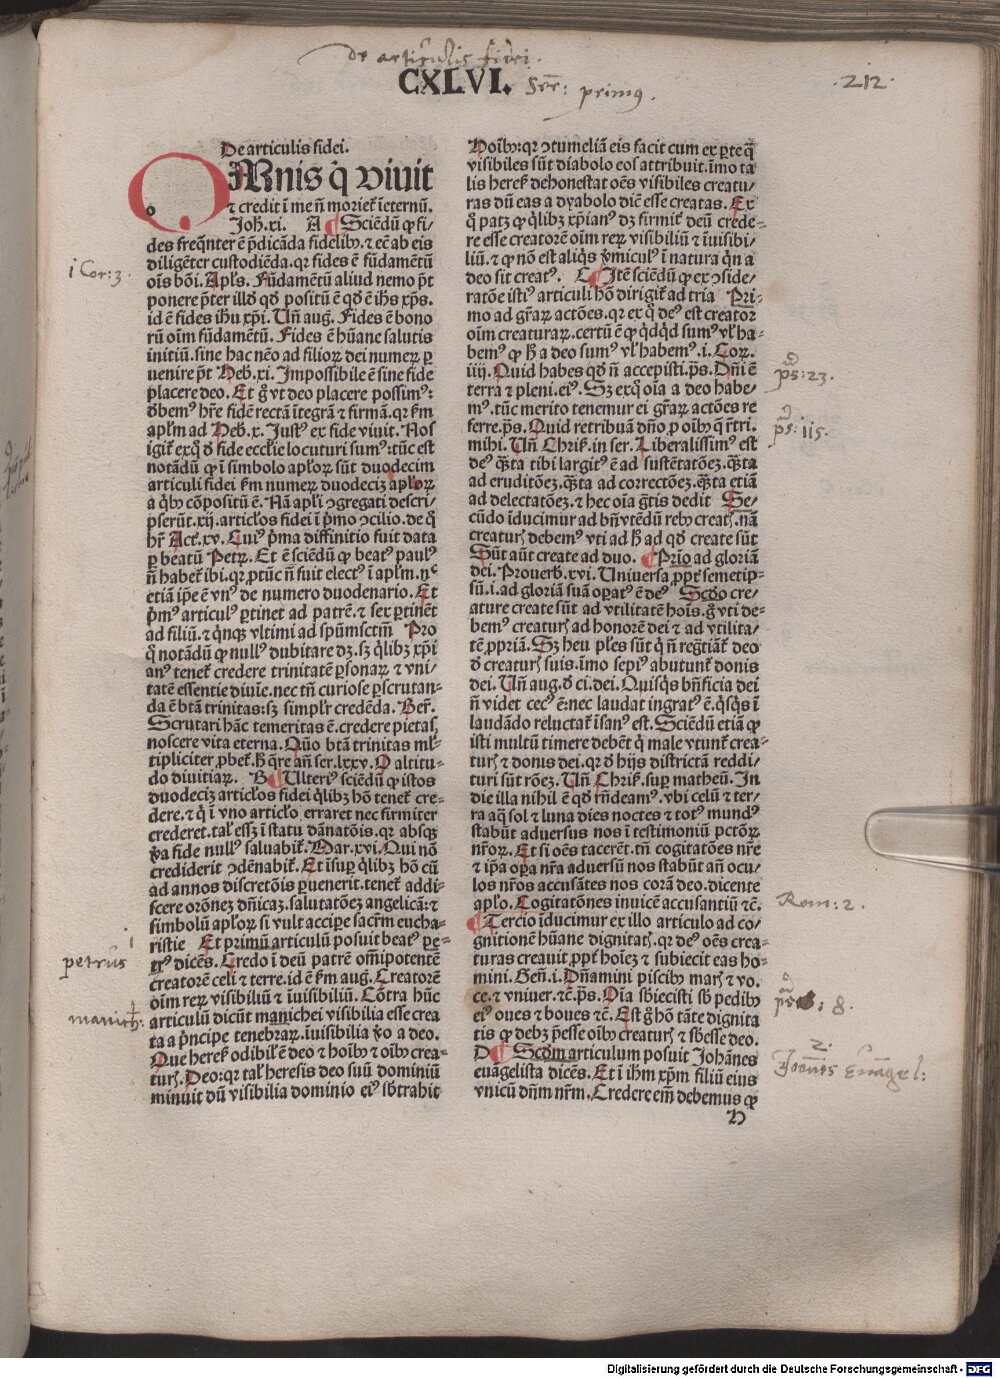 de articulis fidei.
CXLVI. Ser: primus.
.212.
De articulis fidei.
OMnis q̄ viuit
⁊ credit ī me nō moriet̄ īeternū.
Joh̄.xi. A Sciēdū ꝙ fi/
des freq̄nter ē p̄dicāda fidelib⁹.⁊ eē ab eis
diligēter custodiēda.qr fides ē fūdamētū
oīs bōi.Apl̄s. Fūdamētū aliud nemo p̄t
ponere p̄ter illd̄ qd̄ positū ē qd̄ ē ih̄s xp̄s.
id ē fides ih̄u xp̄i. Un̄ aug. Fides ē bono
rū oīm fūdamētū. Fides ē hūane salutis
initiū.sine hac nēo ad filioꝝ dei numeꝝ ꝑ
uenire p̄t Heb̄.xi. Impossibile ē sine fide
placere deo. Et g̊ vt deo placere possim⁹:
dbem⁹ hr̄e fidē rectā ītegrā ⁊ firmā.qr k̄m
apl̄m ad Heb̄.x. Just⁹ ex fide viuit. Nos
igit̄ exq̄ d̄ fide eccl̄ie locuturi sum⁹:tūc est
notādū ꝙ ī simbolo apl̄oꝝ sūt duodecim
articuli fidei k̄m numeꝝ duodecim apl̄oꝝ
a qb⁹ cōpositū ē. Nā apl̄i ɔgregati descri/
pserūt.xij.articl̄os fidei ī p̄mo ɔcilio.de q̄
hr̄ Act̄.xv. Cui⁹ p̄ma diffinitio fuit data
ꝑ beatū Petꝝ. Et ē sciēdū ꝙ beat⁹ paul⁹
n̄ habet̄ ibi.qr ꝓtūc n̄ fuit elect⁹ ī apl̄m.nᶜ
etiā ip̄e ē vn⁹ de numero duodenario. Et
p̄m⁹ articul⁹ ꝑtinet ad patrē.⁊ sex ꝑtinēt
ad filiū.⁊ qnqꝫ vltimi ad sp̄umsctm̄ Pro
q̄ notādū ꝙ null⁹ dubitare dꝫ.sꝫ qlibꝫ xp̄i
an⁹ tenet̄ credere trinitatē ꝑsonaꝝ ⁊ vni/
tatē essentie diuīe.nec tn̄ curiose ꝑscrutan/
da ē btā trinitas:sꝫ simplr̄ credēda. Ber̄.
Scrutari hāc temeritas ē.credere pietas,
noscere vita eterna. Quō btā trinitas ml̄/
tipliciter ꝓbet̄.h̄ q̄re an̄ ser.lxxv. O altitu/
do diuitiaꝝ. B Ulteri⁹ sciēdū ꝙ istos
duodecim articl̄os fidei qlibꝫ hō tenet̄ cre/
dere.⁊ q̄ ī vno articl̄o erraret nec firmiter
crederet.tal̄ essꝫ ī statu dānatōis.qr absqꝫ
v̄a fide null⁹ saluabit̄.Mar.xvi. Qui nō
crediderit ɔdēnabit̄. Et īsuꝑ qlibꝫ hō cū
ad annos discretōis ꝑuenerit.tenet̄ addi/
scere orōnez dn̄icaꝫ.salutatōeꝫ angelicā:⁊
simbolū apl̄oꝝ si vult accipe sacr̄m eucha/
ristie Et primū articulū posuit beat⁹ pe/
tr⁹ dicēs. Credo ī deū patrē om̄ipotentē
creatorē celi ⁊ terre.id ē k̄m aug. Creatorē
oīm reꝝ visibiliū ⁊ īuisibiliū. Cōtra hūc
articulū dicūt manichei visibilia esse crea
ta a p̄ncipe tenebraꝝ.īuisibilia v̄o a deo.
Que heres̄ odibil̄ ē deo ⁊ hoīb⁹ ⁊ oīb⁹ crea/
turꝭ. Deo:qr tal̄ heresis deo suū dominiū
minuit dū visibilia dominio ei⁹ sbtrahit
Hoīb⁹:qr ɔtumeliā eis facit cum ex ꝑte q̄
visibiles sūt diabolo eos attribuit.īmo ta
lis heres̄ dehonestat oēs visibiles creatu/
ras dū eas a dyabolo diē esse creatas. Ex
q̄ patꝫ ꝙ qlibꝫ xp̄ian⁹ dꝫ firmit̄ deū crede/
re esse creatorē oīm reꝝ visibiliū ⁊ īuisibi/
liū.⁊ ꝙ nō est aliqs v̄micul⁹ ī natura qn̄ a
deo sit creat⁹. C Itē sciēdū ꝙ ex ɔside/
ratōe isti⁹ articuli hō dirigit̄ ad tria Pri/
mo ad gr̄aꝝ actōes.qr ex q̄ de⁹ est creator
oīm creaturaꝝ.certū ē ꝙ qdqd sum⁹ vl̄ ha/
bem⁹ ꝙ h̄ a deo sum⁹ vl̄ habem⁹.i. Coꝝ.
iiij. Quid habes qd̄ n̄ accepisti.ps̄. Dn̄i ē
terra ⁊ pleni.ei⁹. Sꝫ exq̄ oīa a deo habe/
m⁹.tūc merito tenemur ei gr̄aꝝ actōes re
ferre.ps̄. Quid retribuā dn̄o.ꝓ oīb⁹ q̄ r̄tri.
mihi. Un̄ Chris̄.in ser. Liberalissim⁹ est
de⁹.q̄sta tibi largit⁹ ē ad sustētatōeꝫ.q̄sta
ad eruditōeꝫ.q̄sta ad correctōeꝫ.q̄sta etiā
ad delectatōeꝫ.⁊ hec oīa gr̄tis dedit Se/
cūdo īducimur ad bn̄vtēdū reb⁹ creatꝭ.nā
creaturꝭ debem⁹ vti ad h̄ ad qd̄ create sūt
Sūt aūt create ad duo. Prīo ad gloriā
dei. Prouerb̄.xvi. Uniuersa ꝓpt̄ semetip/
sū.i.ad gloriā suā oꝑat⁹ ē de⁹ Scd̄o cre/
ature create sūt ad vtilitatē hoīs.g̊ vti de/
bem⁹ creaturꝭ ad honorē dei ⁊ ad vtilita/
tē ꝓpriā. Sꝫ heu pl̄es sūt q̄ n̄ regr̄tiāt̄ deo
d̄ creaturꝭ suis.īmo sepi⁹ abutunt̄ donis
dei. Un̄ aug.d̄ ci.dei. Quisq̄s bn̄ficia dei
n̄ videt cec⁹ ē:nec laudat ingrat⁹ ē.q̄sq̄s ī
laudādo reluctat̄ īsan⁹ est. Sciēdū etiā ꝙ
isti multū timere debēt q̄ male vtunt̄ crea/
turꝭ ⁊ donis dei.qr d̄ hijs districtā reddi/
turi sūt rōeꝫ. Un̄ Chris̄.suꝑ matheū. In
die illa nihil ē qd̄ rn̄deam⁹.vbi celū ⁊ ter/
ra aq̄ sol ⁊ luna dies noctes ⁊ tot⁹ mund⁹
stabūt aduersus nos ī testimoniū pctōꝝ
nr̄oꝝ. Et si oēs tacerēt.tn̄ cogitatōes nr̄e
⁊ ip̄a oꝑa nr̄a aduersū nos stabūt an̄ ocu/
los nr̄os accusātes nos corā deo.dicente
apl̄o. Cogitatōnes inuicē accusantiū ⁊c̄.
Tercio īducimur ex illo articulo ad co/
gnitionē hūane dignitatꝭ.qr de⁹ oēs crea/
turas creauit ꝓpt̄ hoīeꝫ ⁊ subiecit eas ho/
mini. Gen̄.i. Dn̄amini piscib⁹ marꝭ ⁊ vo.
ce.⁊ vniuer.⁊c̄.ps̄. Oīa sbiecisti sb̄ pedib⁹
ei⁹ oues ⁊ boues ⁊c̄. Est g̊ hō tāte dignita
tis ꝙ debꝫ p̄esse oīb⁹ creaturꝭ ⁊ sbesse deo.
D Scd̄m articulum posuit Johānes
euāgelista dicēs. Et ī ih̄m xp̄m filiū eius
vnicū dn̄m nr̄m. Credere em̄ debemus ꝙ
D
i Cor: 3.
i
petrus
manich:
ps: 23.
ps: 115.
Rom: 2.
ps: 8.
2.
Joannis Euāgel:
Digitalisierung gefördert durch die Deutsche Forschungsgemeinschaft - DFG